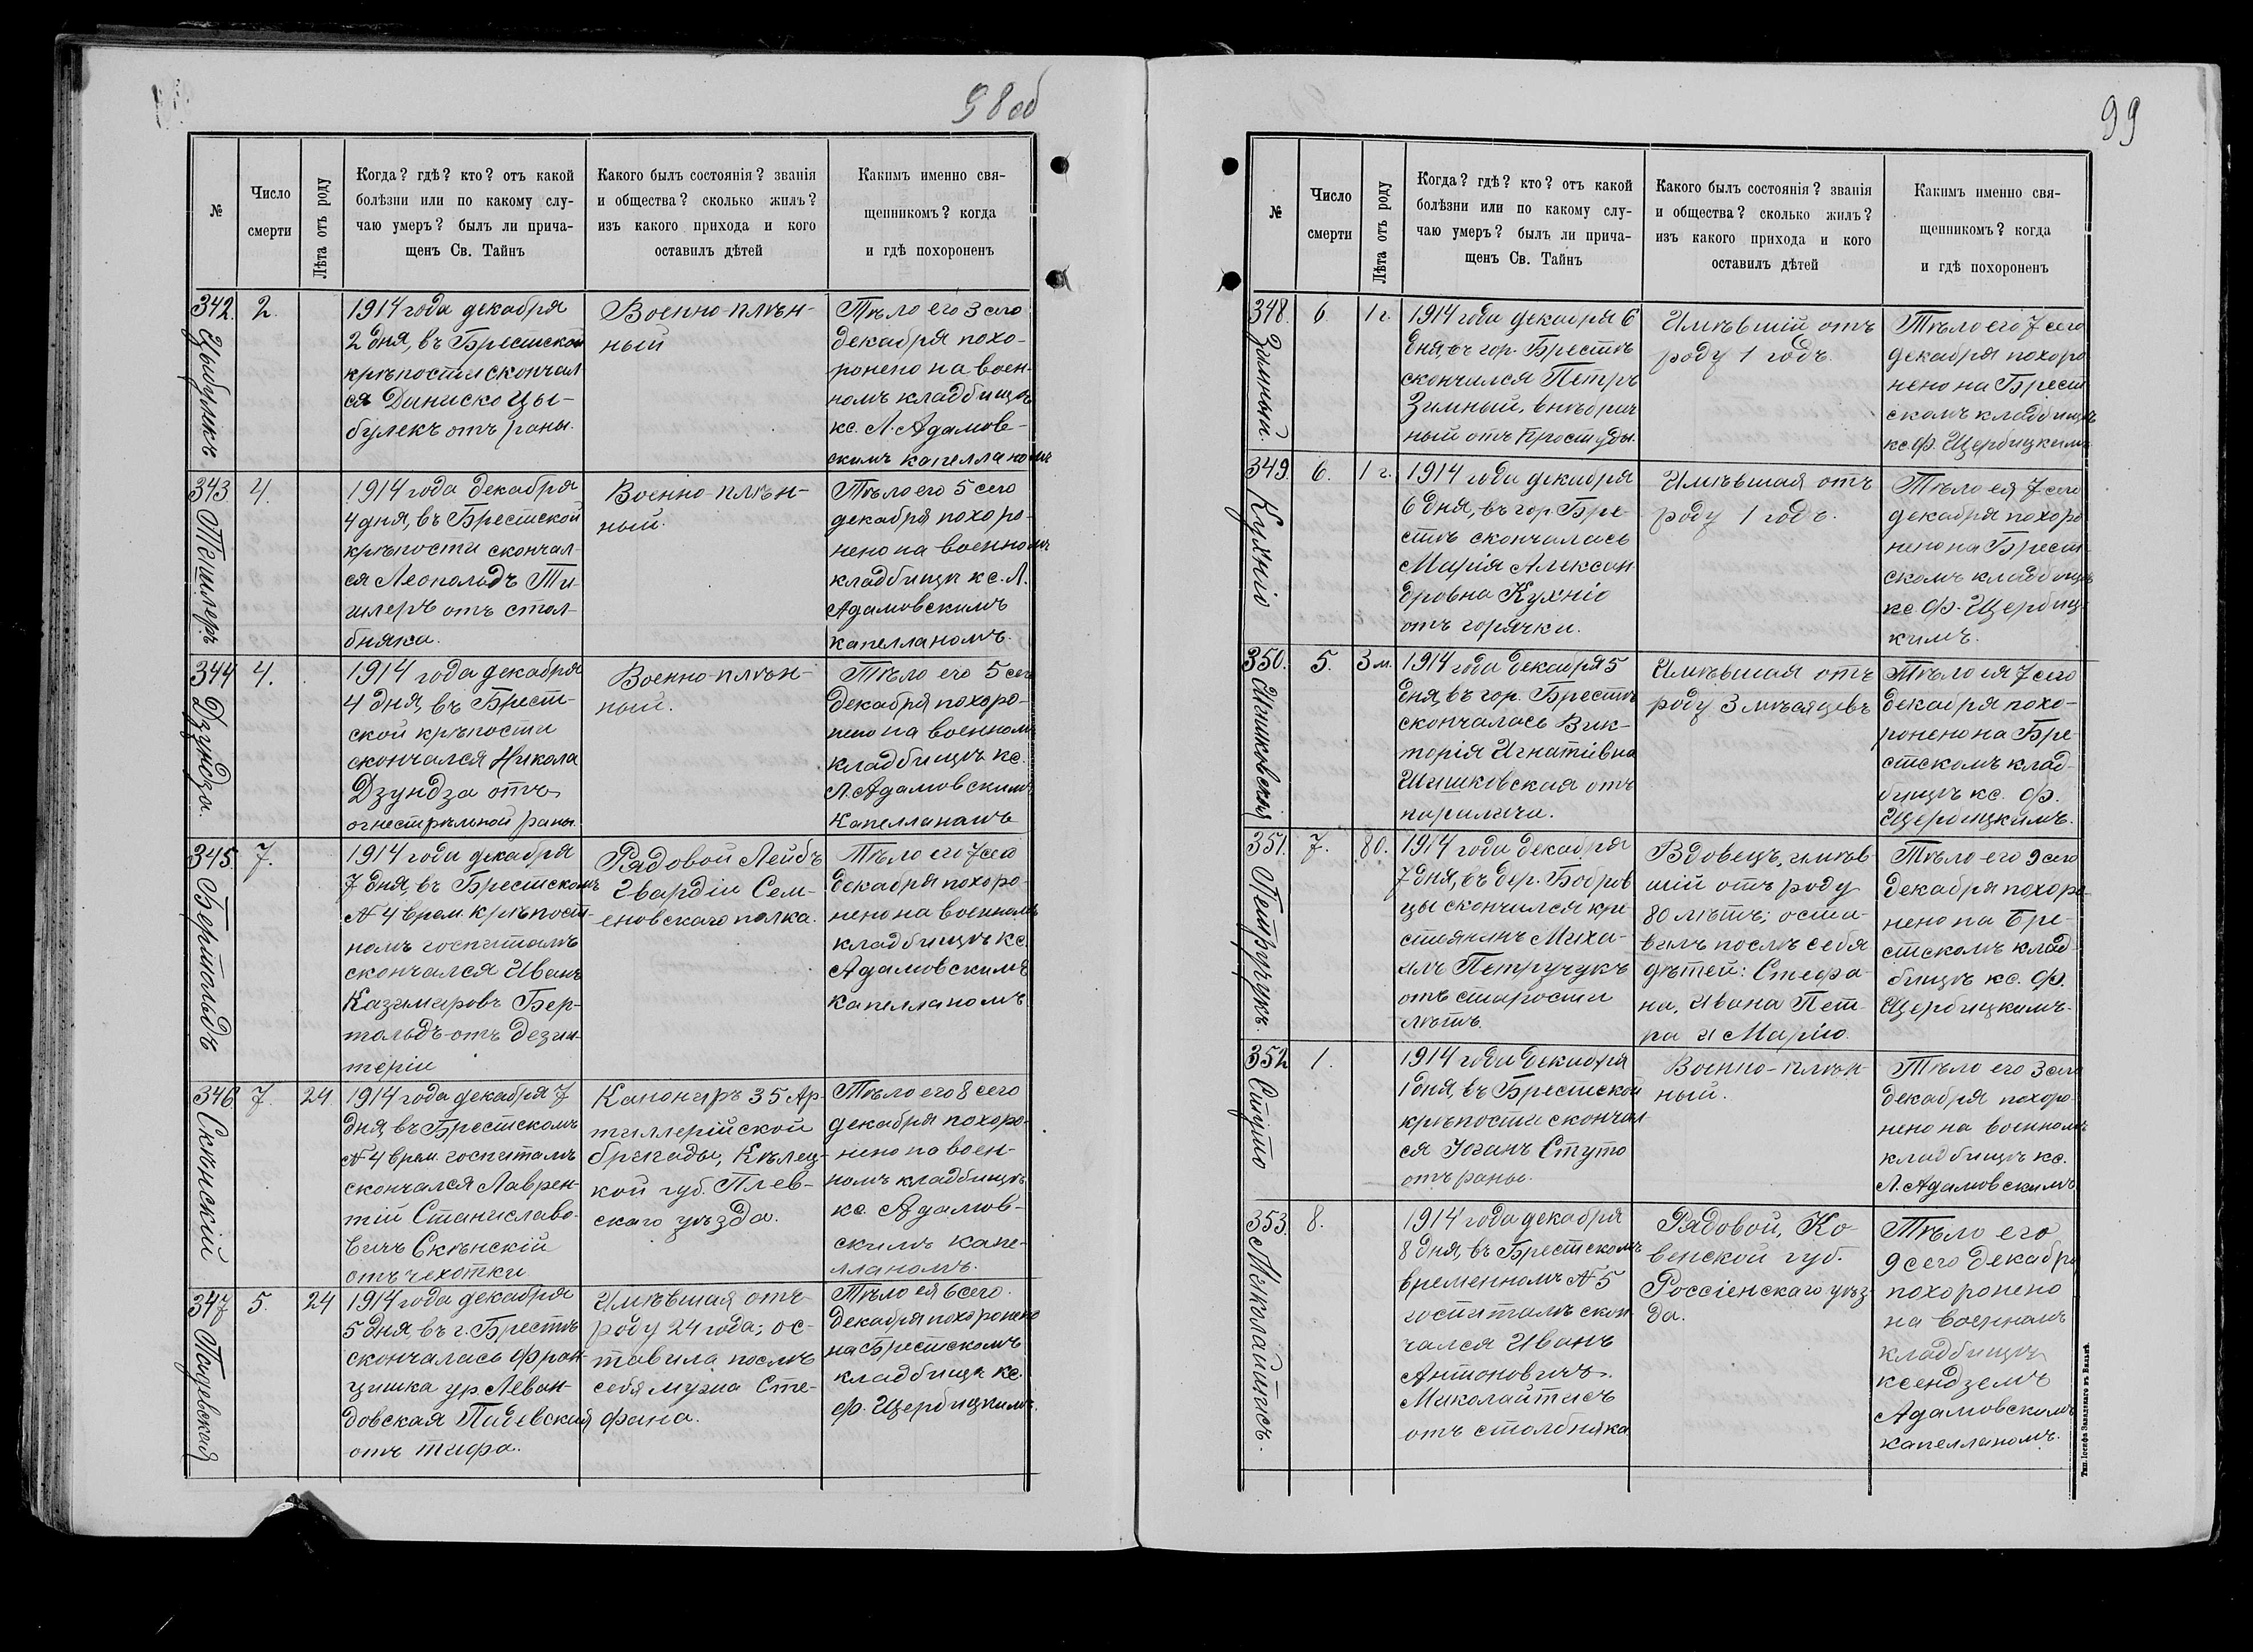 98 об
№
Число
смерти
Лѣта отъ роду
Когда? гдѣ? кто? отъ какой
болѣзни или по какому слу-
чаю умеръ? былъ ли прича-
щенъ Св. Тайнъ
Какого былъ состоянія? званія
и общества? сколько жилъ?
изъ какого прихода и кого
оставилъ дѣтей
Какимъ именно свя-
щенникомъ? когда
и гдѣ похороненъ
342.
Цыбулекъ
2.
1914 года декабря
2 дня, въ Брестской
крѣпости скончал
ся Даниско Цы-
булекъ отъ раны.
Военно-плѣн-
ный
Тѣло его 3 сего
декабря похо-
ронено на воен-
номъ кладбищѣ
кс. Л. Адамов-
скимъ капелланомъ
343.
Тишлеръ
4.
1914 года декабря
4 дня, въ Брестской
крѣпости скончал-
ся Леопольдъ Ти-
шлеръ отъ стол-
бняка.
Военно-плѣн-
ный.
Тѣло его 5 сего
декабря похоро-
нено на военномъ
кладбищѣ кс. Л.
Адамовскимъ
капелланомъ.
344
Дзундза.
4.
1914 года декабря
4 дня, въ Брест-
ской крѣпости
скончался Никола
Дзундза отъ
огнестрѣльной раны.
Военно-плѣн-
ный.
Тѣло его 5 сего
декабря похоро-
нено на военномъ
кладбищѣ кс.
Л. Адамовскимъ
капелланомъ
345.
Бертольдъ
7.
1914 года декабря
7 дня, въ Брестскомъ
№ 4 врем. крѣпост-
номъ госпиталѣ
скончался Иванъ
Казимировъ Бер-
тольдъ отъ дезин-
теріи
Рядовой Лейбъ
Гвардіи Сем-
еновскаго полка.
Тѣло его 7 сего
декабря похоро-
нено на военномъ
кладбищѣ кс.
Адамовскимъ
капелланомъ
346
Скѣнскій
7.
24
1914 года декабря 7
дня, въ Брестскомъ
№ 4 врем. госпиталѣ
скончался Лаврен-
тій Станиславо-
вичъ Скѣнскій
отъ чехотки
Канониръ 35 Ар-
тиллерійской
бригады, Кѣлец-
кой губ. Плев-
скаго уѣзда.
Тѣло его 8 сего
декабря похоро-
нено на воен-
номъ кладбищѣ
кс. Адамов-
скимъ капе-
лланомъ.
347
Падевская
5.
24
1914 года декабря
5 дня, въ г. Брестѣ
скончалась Фран-
цишка ур. Леван-
довская Падевская
отъ тифа.
Имѣвшая отъ
роду 24 года; ос-
тавила послѣ
себя мужа Сте-
фана.
Тѣло ея 6 сего
декабря похоронено
на Брестскомъ
кладбищѣ кс.
Ф. Щербицкимъ.
99
№
Число
смерти
Лѣта отъ роду
Когда? гдѣ? кто? отъ какой
болѣзни или по какому слу-
чаю умеръ? былъ ли прича-
щенъ Св. Тайнъ
Какого былъ состоянія? званія
и общества? сколько жилъ?
изъ какого прихода и кого
оставилъ дѣтей
Какимъ именно свя-
щенникомъ? когда
и гдѣ похороненъ
348.
Зимный.
6.
1 г.
1914 года декабря 6
дня, въ гор. Брестѣ
скончался Петръ
Зимный, внѣбрач
ный отъ простуды.
Имѣвшій отъ
роду 1 годъ.
Тѣло его 7 сего
декабря похоро
нено на Брест
скомъ кладбищѣ
кс. Ф. Щербицкимъ
349.
Кухніо
6.
1 г.
1914 года декабря
6 дня, въ гор. Бре-
стѣ скончалась
Марія Алексан
дровна Кухніо
отъ горячки.
Имѣвшая отъ
роду 1 годъ.
Тѣло ея 7 сего
декабря похоро
нено на Брест-
скомъ кладбищѣ
кс. Ф. Щербиц-
кимъ.
350.
Шишковская
5.
3 м.
1914 года декабря 5
дня, въ гор. Брестѣ
скончалась Вик-
торія Игнатіевна
Шишковская отъ
паралича.
Имѣвшая отъ
роду 3 мѣсяцевъ
Тѣло ея 7 сего
декабря похо-
ронено на Бре-
стскомъ клад-
бищѣ кс. Ф.
Щербицкимъ.
351.
Петручукъ.
7.
80.
1914 года декабря
7 дня, въ дер. Бобров
цы скончился кре
стьянинъ Миха-
илъ Петручукъ
отъ старости
лѣтъ.
Вдовецъ, имѣв
шій отъ роду
80 лѣтъ; оста-
вилъ послѣ себя
дѣтей: Стефа-
на, Ивана Пет-
ра и Марію.
Тѣло его 9 сего
декабря похоро
нено на Бре-
стскомъ клад-
бищѣ кс. Ф.
Щербицкимъ.
352
Стуто
1.
1914 года декабря
1 дня, въ Брестской
крѣпости скончал
ся Іоганъ Стуто
отъ раны.
Военно-плѣн-
ный.
Тѣло его 3 сего
декабря похоро
нено на военномъ
кладбищѣ кс.
Л. Адамовскимъ
353.
Миколайтисъ.
8.
1914 года декабря
8 дня, въ Брестскомъ
временномъ № 5
госпиталѣ скон
чался Иванъ
Антоновичъ
Миколайтисъ
отъ столбняка
Рядовой, Ко-
венской губ.
Россіенскаго уѣз
да.
Тѣло его
9 сего декабря
похоронено
на военномъ
кладбищѣ
ксендземъ
Адамовскимъ
капелланомъ.
Тип. Іосифа Завадзкаго въ Вильнѣ